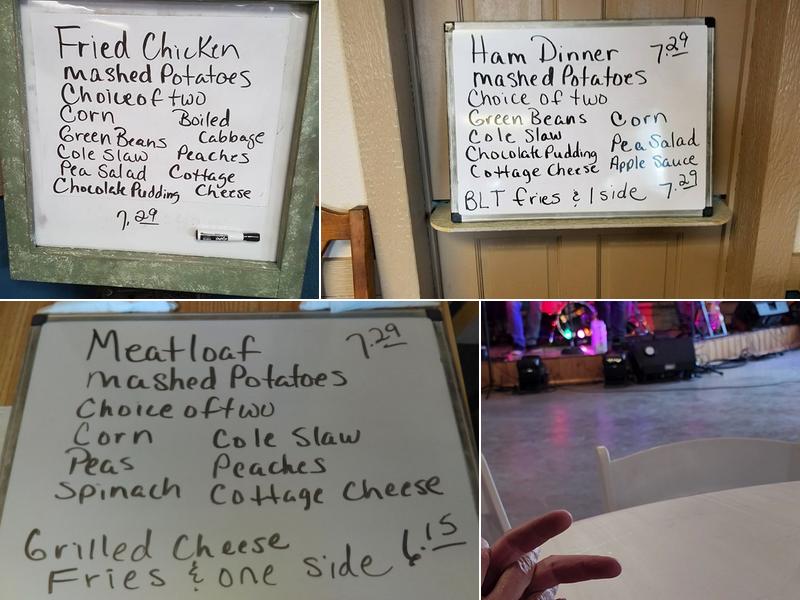 Fried Chicken
mashed Potatoes
Choice of two
Corn Boiled
Green Beans Cabbage
Cole Slaw Peaches
Pea Salad Cottage
Chocolate Pudding Cheese
7.29
Ham Dinner 7.29
mashed Potatoes
Choice of two
Green Beans Corn
Cole Slaw Pea Salad
Chocolate Pudding Apple Sauce
Cottage Cheese
BLT fries & 1 side 7.29
Meatloaf 7.29
mashed Potatoes
Choice of two
Corn Cole Slaw
Peas Peaches
Spinach Cottage Cheese
Grilled Cheese
Fries & one side 6.15